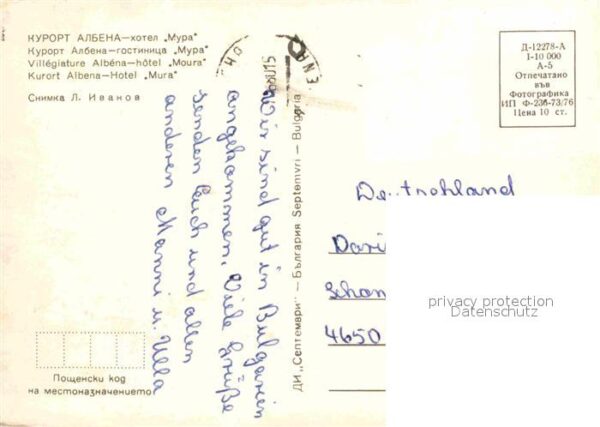 КУРОРТ АЛБЕНА—хотел „Мура"
Курорт Албена—гостиница „Мура"
Villégiature Albéna—hôtel „Moura"
Kurort Albena—Hotel „Mura"
Снимка Л. Иванов
Д-12278-А
I-10 000
А-5
Отпечатано
във
Фотографика
ИП Ф-236-73/76
Цена 10 ст.
Wir sind gut in Bulgarien
angekommen. Viele Grüße
senden Euch und allen
anderen Manni u. Ulla
ДИ „Септември" — България Septemvri — Bulgaria
4650
privacy protection
Datenschutz
Пощенски код
на местоназначението